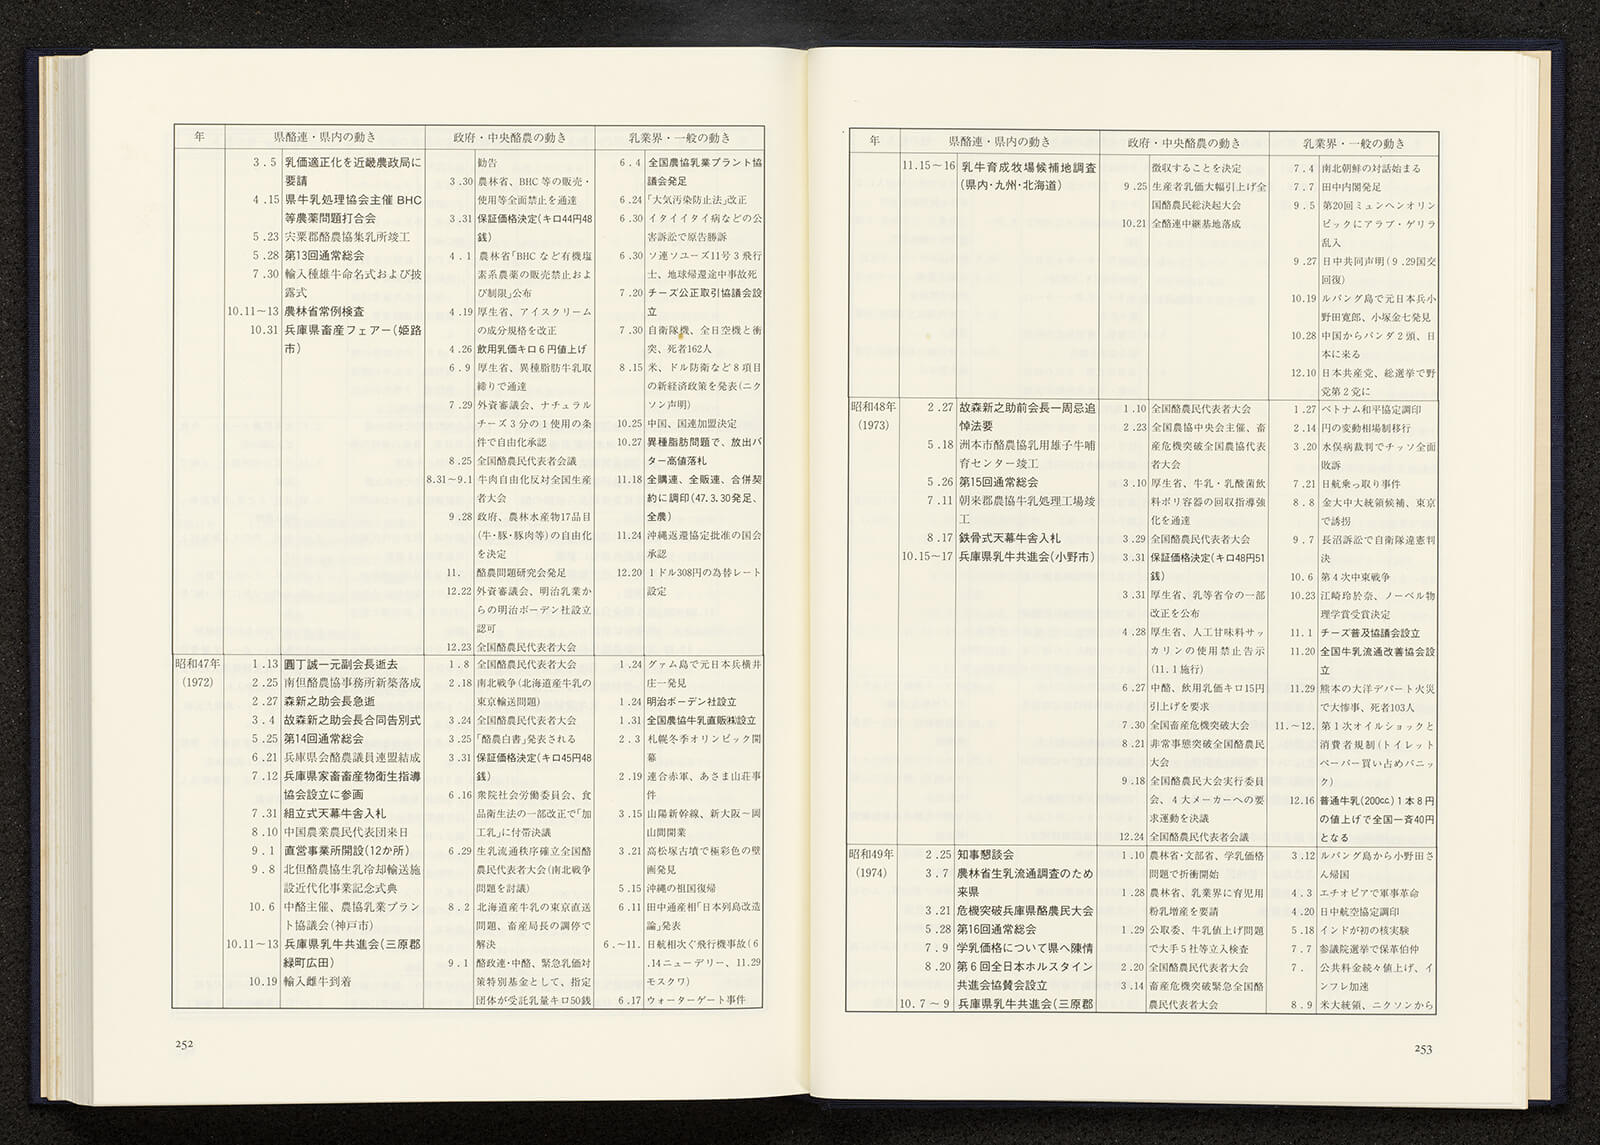 年 県酪連・県内の動き 政府・中央酪農の動き 乳業界・一般の動き
3.5 乳価適正化を近畿農政局に
要請
4.15 県牛乳処理協会主催BHC
等農薬問題打合会
5.23 宍粟郡酪農協集乳所竣工
5.28 第13回通常総会
7.30 輸入種雄牛命名式および披
露式
10.11~13 農林省常例検査
10.31 兵庫県畜産フェアー(姫路
市)
勧告
3.30 農林省、BHC等の販売・
使用等全面禁止を通達
3.31 保証価格決定(キロ44円48
銭)
4.1 農林省「BHCなど有機塩
素系農薬の販売禁止およ
び制限」公布
4.19 厚生省、アイスクリーム
の成分規格を改正
4.26 飲用乳価キロ6円値上げ
6.9 厚生省、異種脂肪牛乳取
締りで通達
7.29 外資審議会、ナチュラル
チーズ3分の1使用の条
件で自由化承認
8.25 全国酪農民代表者会議
8.31~9.1 牛肉自由化反対全国生産
者大会
9.28 政府、農林水産物17品目
(牛・豚・豚肉等)の自由化
を決定
11. 酪農問題研究会発足
12.22 外資審議会、明治乳業か
らの明治ボーデン社設立
認可
12.23 全国酪農民代表者大会
6.4 全国農協乳業プラント協
議会発足
6.24 「大気汚染防止法」改正
6.30 イタイイタイ病などの公
害訴訟で原告勝訴
6.30 ソ連ソユーズ11号3飛行
士、地球帰還途中事故死
7.20 チーズ公正取引協議会設
立
7.30 自衛隊機、全日空機と衝
突、死者162人
8.15 米、ドル防衛など8項目
の新経済政策を発表(ニク
ソン声明)
10.25 中国、国連加盟決定
10.27 異種脂肪問題で、放出バ
ター高値落札
11.18 全購連、全販連、合併契
約に調印(47.3.30発足、
全農)
11.24 沖縄返還協定批准の国会
承認
12.20 1ドル308円の為替レート
設定
昭和47年
(1972)
1.13 圓丁誠一元副会長逝去
2.25 南但酪農協事務所新築落成
2.27 森新之助会長急逝
3.4 故森新之助会長合同告別式
5.25 第14回通常総会
6.21 兵庫県会酪農議員連盟結成
7.12 兵庫県家畜畜産物衛生指導
協会設立に参画
7.31 組立式天幕牛舎入札
8.10 中国農業農民代表団来日
9.1 直営事業所開設(12か所)
9.8 北但酪農協生乳冷却輸送施
設近代化事業記念式典
10.6 中酪主催、農協乳業プラン
ト協議会(神戸市)
10.11~13 兵庫県乳牛共進会(三原郡
緑町広田)
10.19 輸入雌牛到着
1.8 全国酪農民代表者大会
2.18 南北戦争(北海道産牛乳の
東京輸送問題)
3.24 全国酪農民代表者大会
3.25 「酪農白書」発表される
3.31 保証価格決定(キロ45円48
銭)
6.16 衆院社会労働委員会、食
品衛生法の一部改正で「加
工乳」に付帯決議
6.29 生乳流通秩序確立全国酪
農民代表者大会(南北戦争
問題を討議)
8.2 北海道産牛乳の東京直送
問題、畜産局長の調停で
解決
9.1 酪政連・中酪、緊急乳価対
策特別基金として、指定
団体が受託乳量キロ50銭
1.24 グァム島で元日本兵横井
庄一発見
1.24 明治ボーデン社設立
1.31 全国農協牛乳直販㈱設立
2.3 札幌冬季オリンピック開
幕
2.19 連合赤軍、あさま山荘事
件
3.15 山陽新幹線、新大阪~岡
山間開業
3.21 高松塚古墳で極彩色の壁
画発見
5.15 沖縄の祖国復帰
6.11 田中通産相「日本列島改造
論」発表
6.~11. 日航相次ぐ飛行機事故(6
.14ニューデリー、11.29
モスクワ)
6.17 ウォーターゲート事件
252
年 県酪連・県内の動き 政府・中央酪農の動き 乳業界・一般の動き
11.15~16 乳牛育成牧場候補地調査
(県内・九州・北海道)
徴収することを決定
9.25 生産者乳価大幅引上げ全
国酪農民総決起大会
10.21 全酪連中継基地落成
7.4 南北朝鮮の対話始まる
7.7 田中内閣発足
9.5 第20回ミュンヘンオリン
ピックにアラブ・ゲリラ
乱入
9.27 日中共同声明(9.29国交
回復)
10.19 ルバング島で元日本兵小
野田寛郎、小塚金七発見
10.28 中国からパンダ2頭、日
本に来る
12.10 日本共産党、総選挙で野
党第2党に
昭和48年
(1973)
2.27 故森新之助前会長一周忌追
悼法要
5.18 洲本市酪農協乳用雄子牛哺
育センター竣工
5.26 第15回通常総会
7.11 朝来郡農協牛乳処理工場竣
工
8.17 鉄骨式天幕牛舎入札
10.15~17 兵庫県乳牛共進会(小野市)
1.10 全国酪農民代表者大会
2.23 全国農協中央会主催、畜
産危機突破全国農協代表
者大会
3.10 厚生省、牛乳・乳酸菌飲
料ポリ容器の回収指導強
化を通達
3.29 全国酪農民代表者大会
3.31 保証価格決定(キロ48円51
銭)
3.31 厚生省、乳等省令の一部
改正を公布
4.28 厚生省、人工甘味料サッ
カリンの使用禁止告示
(11.1施行)
6.27 中酪、飲用乳価キロ15円
引上げを要求
7.30 全国畜産危機突破大会
8.21 非常事態突破全国酪農民
大会
9.18 全国酪農民大会実行委員
会、4大メーカーへの要
求運動を決議
12.24 全国酪農民代表者会議
1.27 ベトナム和平協定調印
2.14 円の変動相場制移行
3.20 水俣病裁判でチッソ全面
敗訴
7.21 日航乗っ取り事件
8.8 金大中大統領候補、東京
で誘拐
9.7 長沼訴訟で自衛隊違憲判
決
10.6 第4次中東戦争
10.23 江崎玲於奈、ノーベル物
理学賞受賞決定
11.1 チーズ普及協議会設立
11.20 全国牛乳流通改善協会設
立
11.29 熊本の大洋デパート火災
で大惨事、死者103人
11.~12. 第1次オイルショックと
消費者規制(トイレット
ペーパー買い占めパニッ
ク)
12.16 普通牛乳(200cc)1本8円
の値上げで全国一斉40円
となる
昭和49年
(1974)
2.25 知事懇談会
3.7 農林省生乳流通調査のため
来県
3.21 危機突破兵庫県酪農民大会
5.28 第16回通常総会
7.9 学乳価格について県へ陳情
8.20 第6回全日本ホルスタイン
共進会協賛会設立
10.7~9 兵庫県乳牛共進会(三原郡
1.10 農林省・文部省、学乳価格
問題で折衝開始
1.28 農林省、乳業界に育児用
粉乳増産を要請
1.29 公取委、牛乳値上げ問題
で大手5社等立入検査
2.20 全国酪農民代表者大会
3.14 畜産危機突破緊急全国酪
農民代表者大会
3.12 ルバング島から小野田さ
ん帰国
4.3 エチオピアで軍事革命
4.20 日中航空協定調印
5.18 インドが初の核実験
7.7 参議院選挙で保革伯仲
7. 公共料金続々値上げ、イ
ンフレ加速
8.9 米大統領、ニクソンから
253